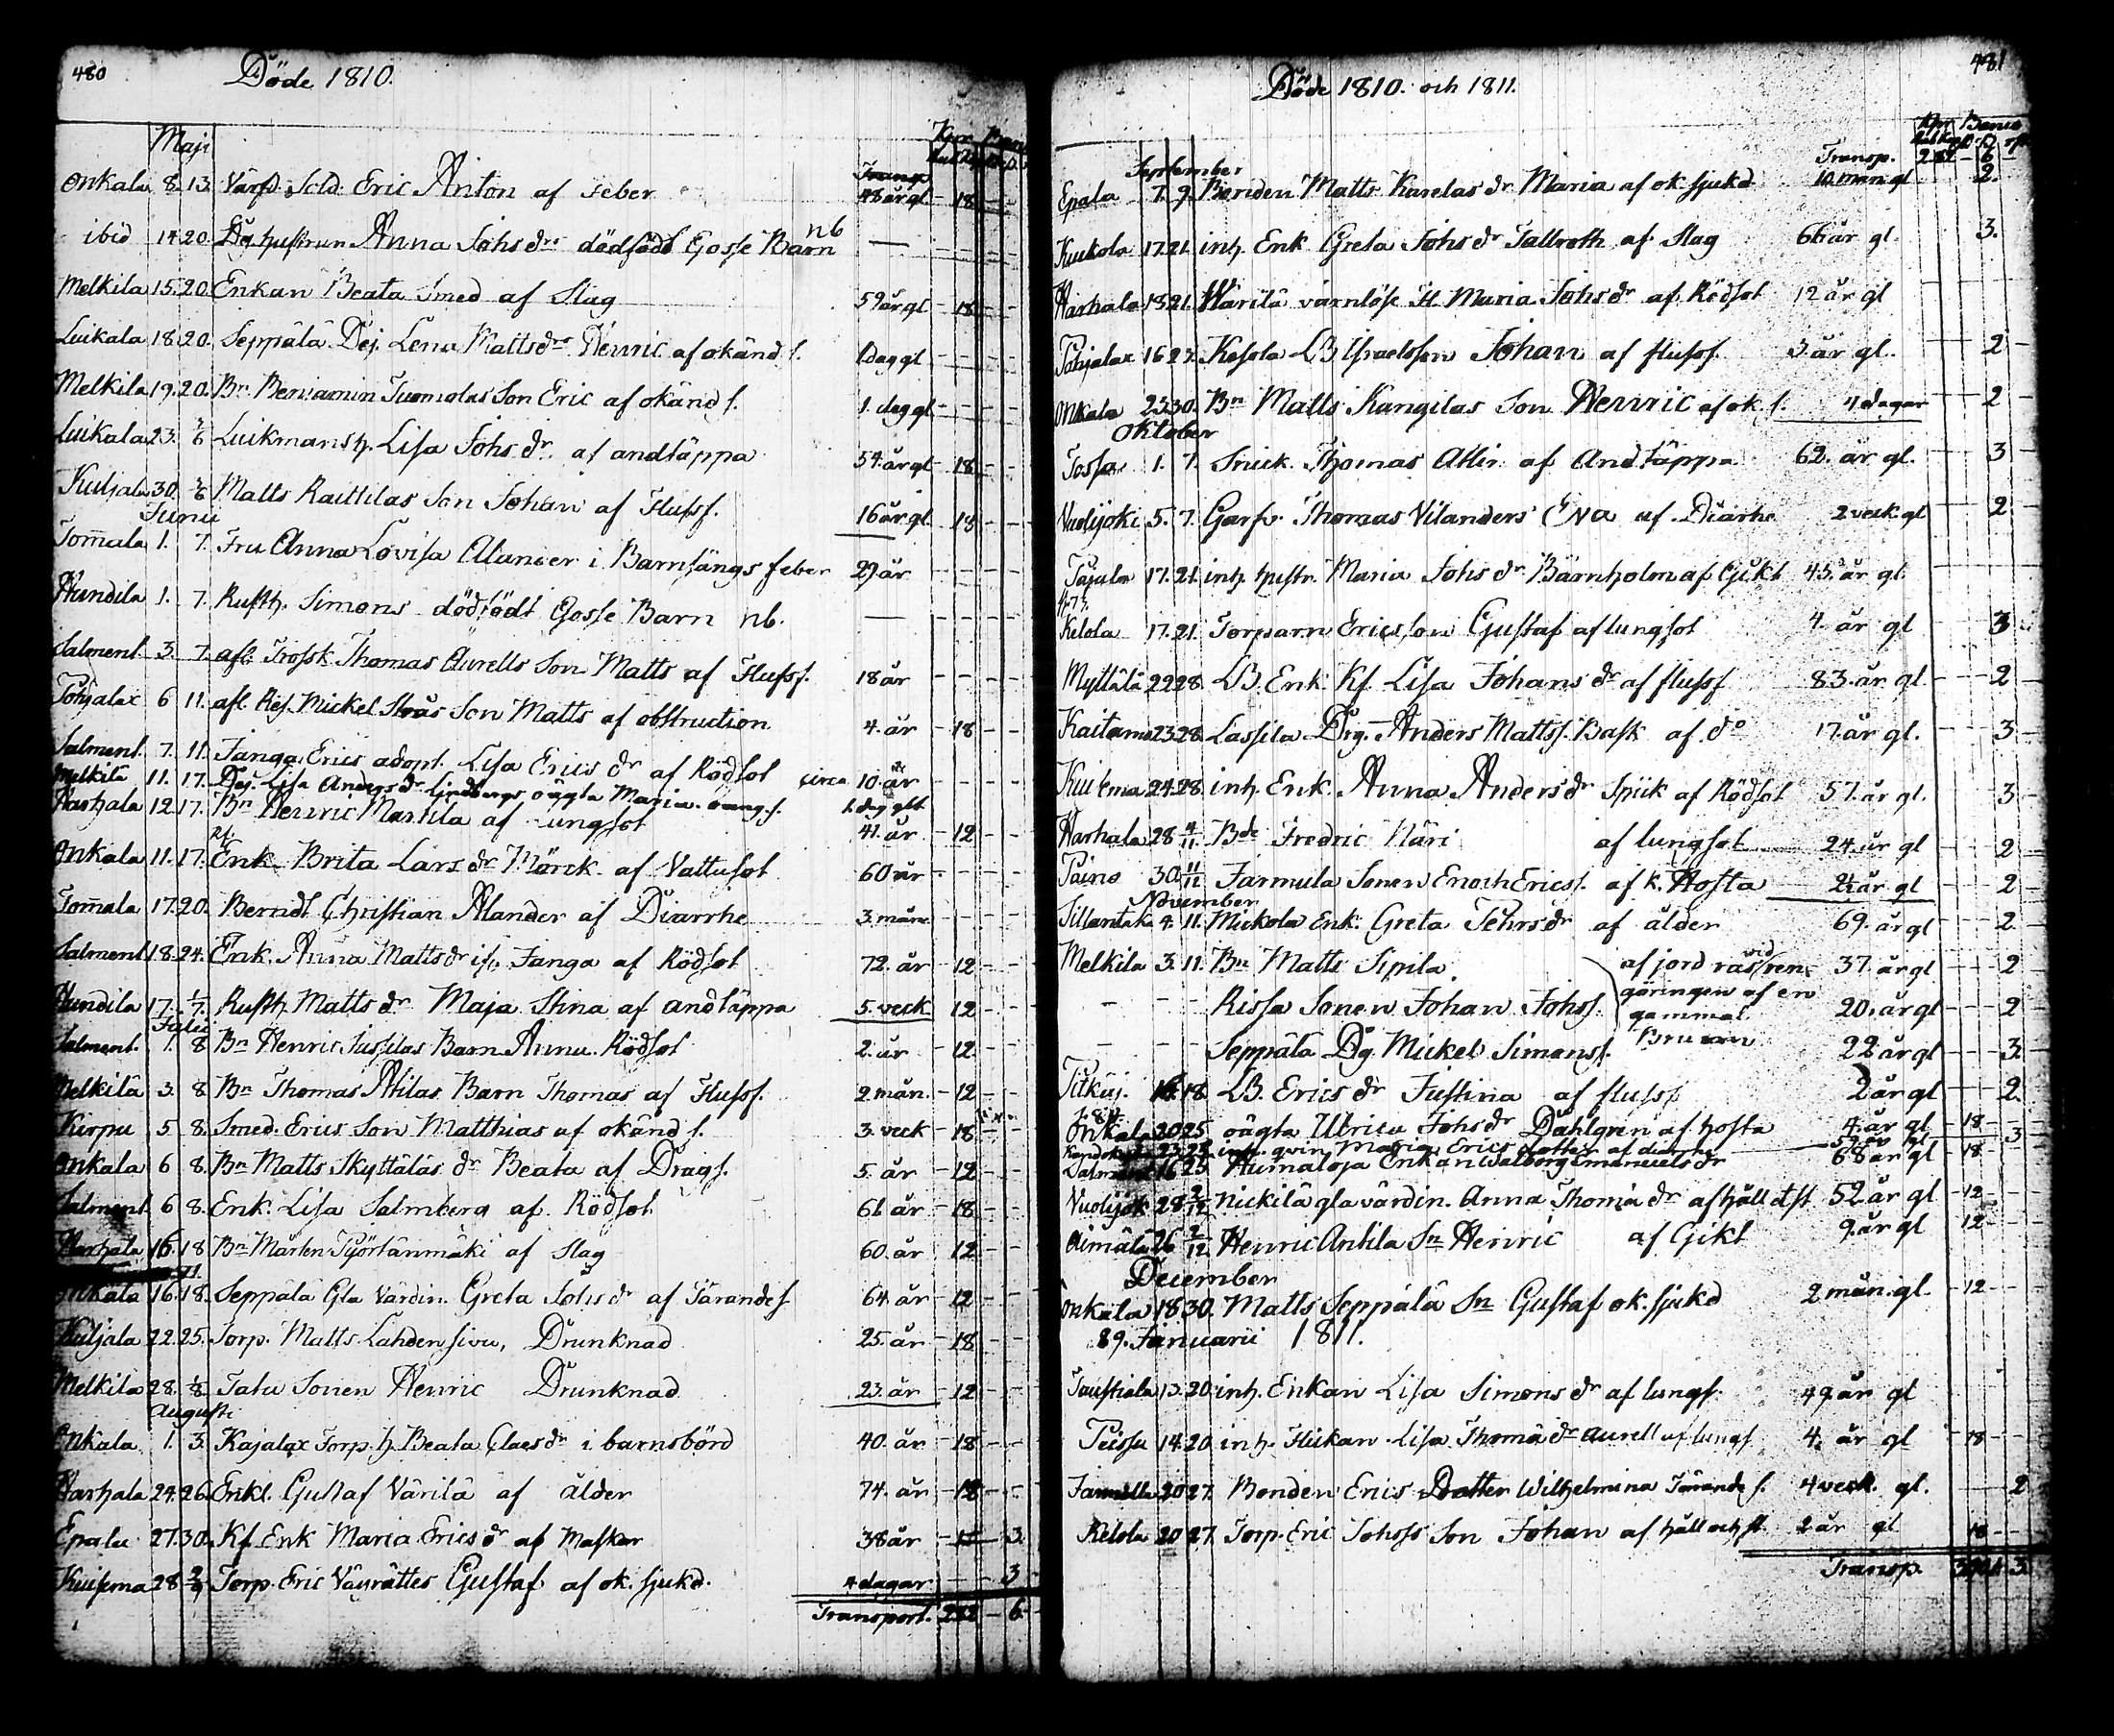 480
Döde 1810.
Maji
Onkala 8. 13. Värfd. Sold. Eric Anton af feber 48 år gl 18
ibid 14. 20. Dg hustrun Anna Johs dr dödfödt Gosse Barn nb
Melkila 15. 20. Enkan Beata Smed af Slag 59 år gl 18
Luikala 18. 20. Seppälä Dej. Lena Matts dr Henric af okänd s. 1 dag gl
Melkila 19. 20. Bn Beniamin Tuomolas Son Eric af okänd s. 1. dag gl
Luikala 23. 3/6 Luikmans h. Lisa Johs dr. af andtäppa 54. år gl 18
Kuljala 30. 3/6 Matts Raittilas Son Johan af Flussf. 16 år gl 18
Junii
Tom̄ala 1. 7. Fru Anna Lovisa Alander i Barnsängs feber 29 år
Hundila 1. 7. Rusth. Simons dödfödt Gosse Barn nb.
Salment. 3. 7. afl. Trossk Thomas Aurells Son Matts af Flussf. 18 år
Pohjalax 6 11. afl. Ref. Mickel Strås Son Matts af obstruction 4. år 18
Salment. 7. 11. Janga Erics adopt. Lisa Erics dr af Rödsot circa 10. år
Melkila 11. 17. Dej. Lisa Anders dr Lindbergs oägta Maria 1. dag glt
Harhala 12. 17. Bn Henric Marttila af Lungsot 41. år 12
Onkala 11. 17. Enk. Brita Lars dr Mörck af Vattusot 60 år
Tom̄ala 17. 20. Berndt Christian Alander af Diarrhe 3. mån
Salment 18. 24. Enk. Anna Matts dr Janga af Rödsot 72. år 12
Hundila 17. 1/7. Rusth Matts dr Maja Stina af andtäppa 5. veck 12
Julii
Salment. 1. 8 Bn Henric Jussilas Barn Anna. Rödsot 2. år 12
Melkila 3. 8 Bn Thomas Atilas Barn Thomas af Flussf. 2 mån. 12
Kirpu 5 8. Smed. Erics Son Matthias af okänd s. 3. veck 18
Onkala 6 8. Bn Matts Skyttäläs dr Beata af Drags. 5. år 12
Salment 6 8. Enk. Lisa Salmberg af Rödsot 66 år 18
Harhala 16. 18 Bn Mårten Työrtänmäki af Slag 60. år 12
Onkala 16. 18. Seppälä Gla Värdin. Greta Johs dr af Tärandes. 64. år 12
Kuljala 22. 25. Torp. Matts Lahdensivu, Drunknad 25. år 18
Melkila 28. 1/8 Tatu Sonen Henric Drunknad 23. år 12
Augusti
Onkala 1. 3. Kajalax Torp. h. Beata Claes dr i barnsbörd 40. år 18
Harhala 24. 26. Enkl. Gustaf Värilä af ålder 74. år 18
Epala 27. 30. Kf. Enk Maria Erics dr af Maskar 38 år 3.
Kuisema 28 2/9 Torp. Eric Väyrättes Gustaf af ok. sjukd. 4 dagar 3
Transport. 282 6.
481
Döde 1810. och 1811.
Transp. 282 6
September
Epala 7. 9. Bonden Matts Karelas dr Maria af ok sjukd 10. mån. gl 2.
Kuckola 17. 21. inh. Enk Greta Johs dr Tallroth af Slag 66 år gl. 3.
Harhala 18 21. Wärilä värnlöse Fl. Maria Johs dr af Rödsot 12 år gl
Pohjalax 16 23. Kesola LB Israelsson Johan af flussf. 3. år gl. 2
Onkala 25 30. Bn Matts Kangilas Son Henric af ok. s. 4 dagar 2
Oktober
1. 7. Snick. Thomas Atlir af Andtäppa 62. år gl. 3
Vuolijoki 5. 7. Garfv. Thomas Vilanders Eva af Diarhe 2 veck. gl 2
17. 21. inh hustr. Maria Johs dr Bärnholm af Gikt 45. år gl.
Kelola 17. 21. Torparn Ericsson Gustaf af lungsot 4. år gl 3
Myttälä 22 28. LB. Enk Kf. Lisa Johans dr af flussf 83. år gl 2
Kaitamo 23 28. Lassila Drg. Anders Matts. Bask af do 17. år gl. 3
Kuisema 24. 28. inh. Enk. Anna Anders dr Spiik af Rödsot 57. år gl. 3
Harhala 28 4/11 Bde Fredric Näri af lungsot 24. år gl 2
Paino 30. 11/11 Jarmula Sonen Enoch Erics. af k. Hosta 2½ år gl 2
November
Sillantaka 4. 11. Mickola Enk. Greta Pehrs dr af ålder 69. år gl 2.
Melkila 3. 11. Bn Matts Sipila. af jord ras vid ren 37. år gl 2
Rissa Sonen Johan Johs. göringen af en gammal 20. år gl 2
Seppälä Dg. Mickel Simons. Brunn 22 år gl 3
Pitkäj. 14. 18. LB. Erics dr Justina af flussf. 2 år gl 2.
Onkala 20 25. oägta Ulrica Johs dr Dahlgren af hosta 4. år gl 18
23 25 inh. qvin. Maria Erics dotter af diarrhe 3
Salment 16 25. Humaloja Enkan Walborg Emanuels dr 68 år gl 18
Vuolijok 28 2/12 Nickilä gla värdin. Anna Thomä dr af håll o. st 52 år gl 12
Äimälä 26 2/12. Henric Antila Sn Henric af Gikt 9. år gl 12
December
Onkala 18 30. Matts Seppälä Sn Gustaf ok. sjukd 2 mån. gl. 12
89. Januarii 1811.
Taustiala 13. 20. inh. Enkan Lisa Simons dr af lungs. 49. år gl
14. 20. inh. Flickan Lisa Thomä dr Aurell af lungs. 4. år gl 18
20 27. Bonden Erics Dotter Wilhelmina Tärande s. 4 veck. gl. 2
Kelola 20 27. Torp. Eric Johss Son Johan af håll och st. 2 år gl 18
Transp. 3.